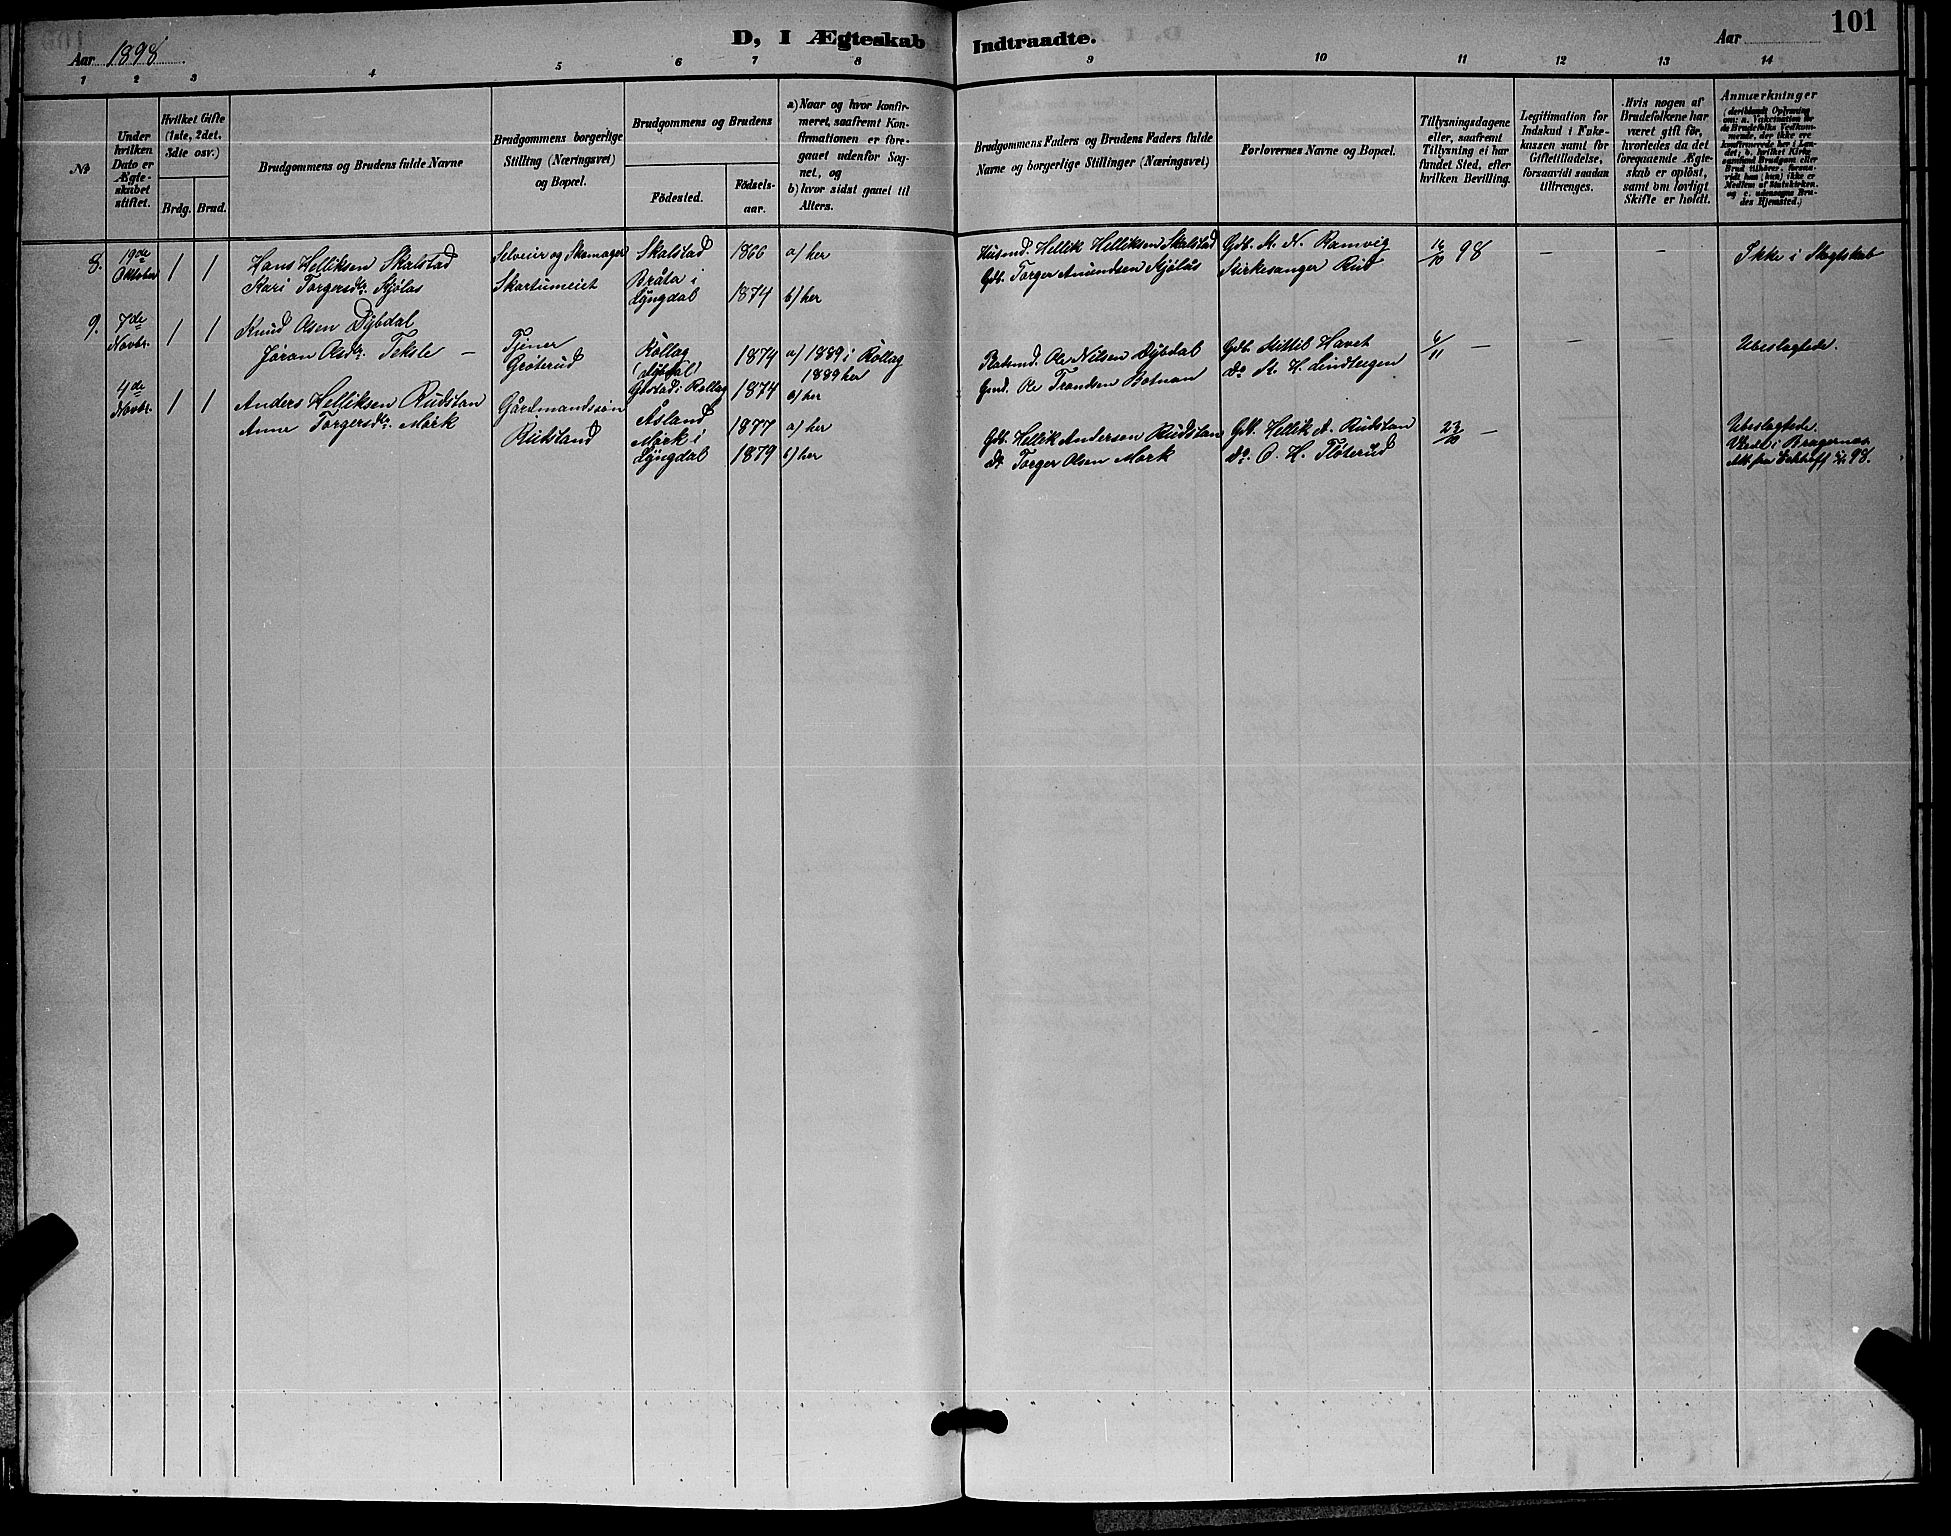 D, I Ægteskab Indtraadte.
101
Aar 1898.
Aar
1 2 3 4 5 6 7 8 9 10 11 12 13 14
No
Under hvilken Dato er Ægteskabet stiftet.
Hvilket Gifte (1ste, 2det, 3die osv.)
Brdg. Brud.
Brudgommens og Brudens fulde Navne
Brudgommens borgerlige Stilling (Næringsvei) og Bopæl.
Brudgommens og Brudens
Födested.
Födsels-aar.
a) Naar og hvor konfirmeret, saafremt Konfirmationen er foregaaet udenfor Sognet, og
b) hvor sidst gaaet til Alters.
Brudgommens Faders og Brudens Faders fulde Navne og borgerlige Stillinger (Næringsvei)
Forlovernes Navne og Bopæl.
Tillysningsdagene eller, saafremt Tillysning ei har fundet Sted, efter hvilken Bevilling.
Legitimation for Indskud i Enkekassen samt for Giftetilladelse, forsaavidt saadan tiltrænges.
Hvis nogen af Brudefolkene har været gift för, hvorledes da det foregaaende Ægteskab er oplöst, samt om lovligt Skifte er holdt.
Anmærkninger
8. 19de Oktober 1 1
Hans Helliksen Skalstad
Kari Torgersdr. Kjölås
Selveier og Skomager
Skartumeiet
Skalstad 1866 a) her
Bråta i Lyngdal 1874 b) her
Husmd. Hellik Helliksen Skalstad
Gdb. Torger Amundsen Kjölås
Gdb. K. N. Ramvig
Kirkesanger Rud
16/10 98 — — —
Ikke i Slegtskab
9. 7de Novbr. 1 1
Knud Olsen Dybdal
Jöran Olsdr. Teksle —
Tjener
Groterud
Rollag (Dybdal) 1874 a) 1889 i Rollag
1889 her
i Rollag 1874 b) her
Ole Nilsen Dybdal
Gmd. Ole Trondsen Botnan
Gdb. Kittil Havet
Do K. H. Lindteigen
6/11 — — —
Ubeslægtede.
4de Novbr. 1 1
Anders Helliksen Rudstan
Anne Torgersdr. Mörk
Gårdmandssön
Rudstand
Åsland 1877 a) her
Mörk i Lyngdal 1879 b) her
Gdb. Hellik Andersen Rudstan
Do. Torger Olsen Mörk
Gdb. Hellik A. Rudstan
Do. O. H. Flöterud
23/10 —
Ubeslægtede.
Viede i Bragernes
98.